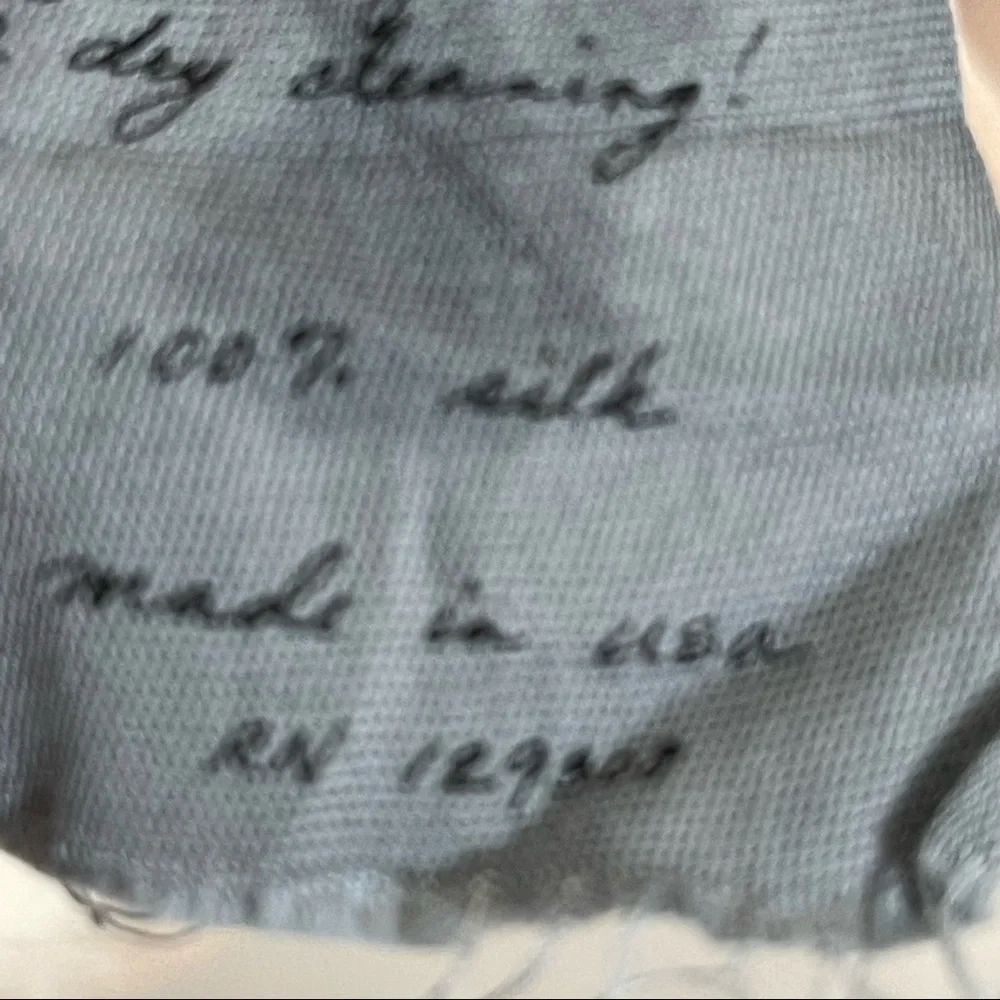 dry cleaning!
100% silk
made in usa
RN